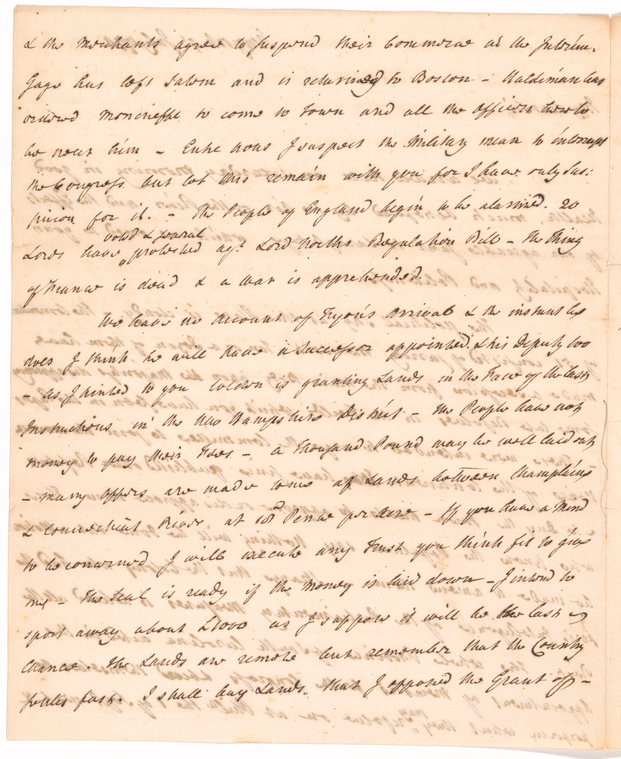 & the Merchants agree to suspend their Commerce in the Interim.
Gage has left Salem and is returned to Boston – Haldimand has
ordered Moncrieffe to come to Town and all the officers here to
be near him – Entre nous I suspect the Military mean to interrupt
the Congress but let this remain with you for I have only sus:
picion for it. – The People of England begin to be alarmed. 20
Lords have voted & several protested agt. Lord Norths Regulation Bill – The King
of France is dead & a War is apprehended.
We have no account of Tryon's arrival & the instant he
does I think he will have a Successor appointed, & his Deputy too
– as I hinted to you Colden is granting Lands in the Face of the last
Instructions in the New Hampshire District – The People have not
money to pay their Fees –. a Thousand Pound may be well laid out
– many offers are made to me of Lands between Champlain
& Connecticut River at Pence per Acre – If you have a Mind
to be concerned I will execute any Trust you think fit to give
me – The Seal is ready if the Money is laid down – I intend to
sport away about £1000 as I suppose it will be the last
Chance. The Lands are remote but remember that the Country
settles fast. I shall buy Lands. that I opposed the Grant of –